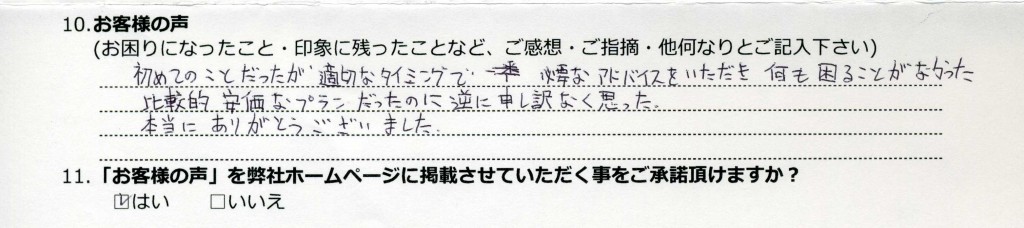 10.お客様の声
(お困りになったこと・印象に残ったことなど、ご感想・ご指摘・他何なりとご記入下さい)
初めてのことだったが 適切なタイミングで 必要なアドバイスをいただき 何も困ることがなかった
比較的 安価なプランだったのに 逆に申し訳なく思った.
本当に ありがとう ございました.
11.「お客様の声」を弊社ホームページに掲載させていただく事をご承諾頂けますか？
☑はい □いいえ